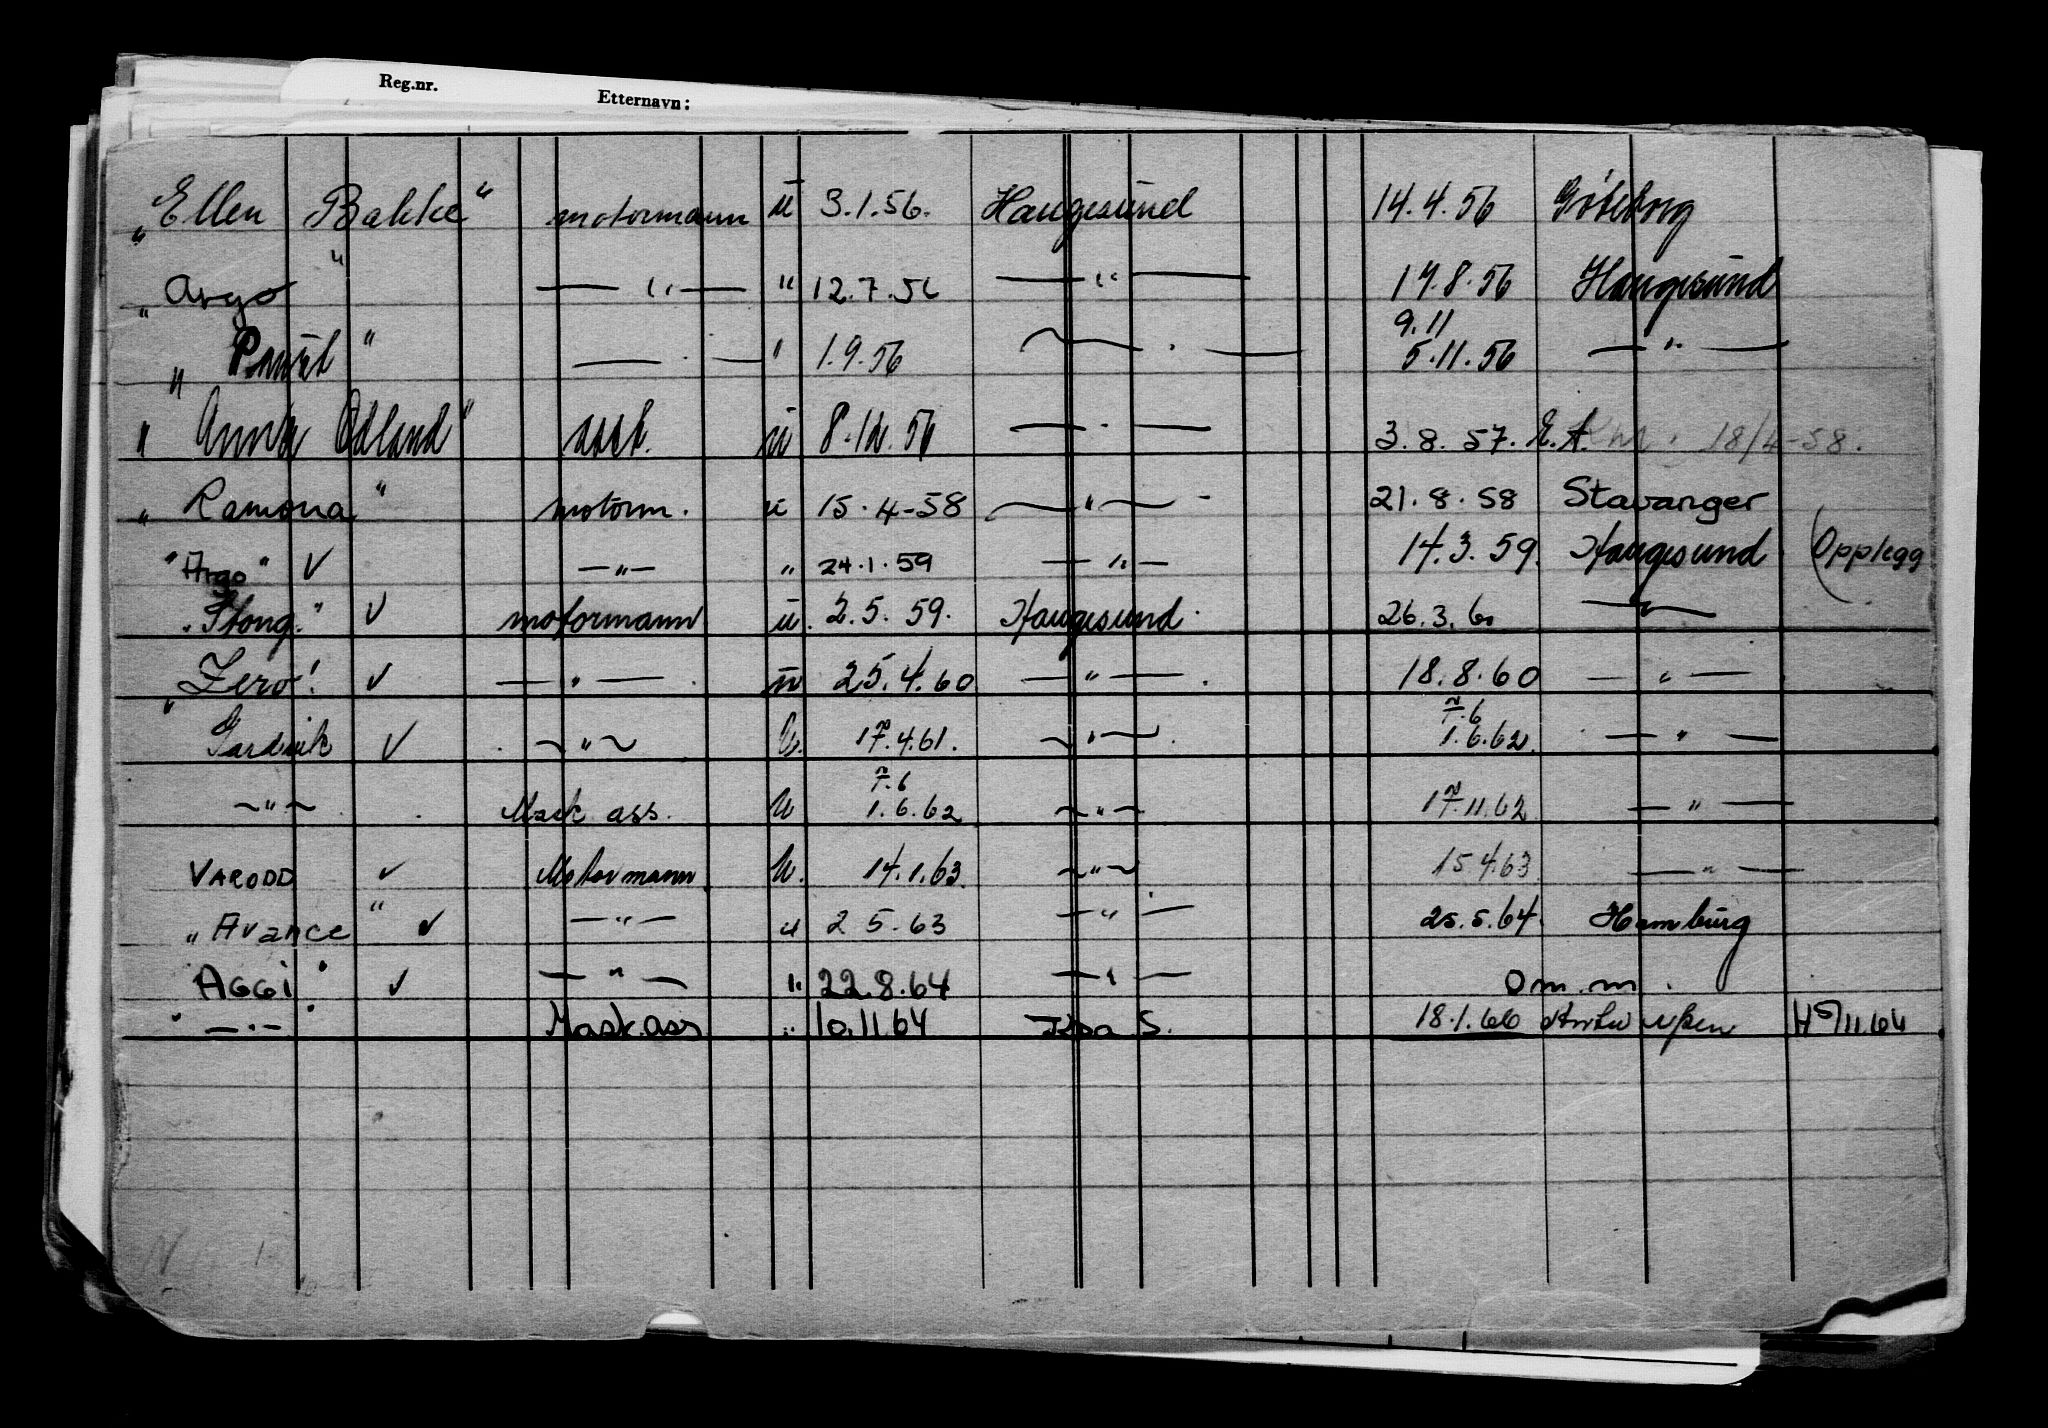 Reg.nr. Etternavn:
"Ellen Bakke" motormann u 3.1.56. Haugesund 14.4.56 Göteborg
"Argo" —"— " 12.7.56 —"— 17.8.56 Haugesund
9.11
" " — . — " 1.9.56 — . — 5.11.56 —"—
"Anna Odland" asst. u 8.12.56 — . — 3.8.57. E.A. Km. 18/4-58.
"Ramona" motorm. u 15.4-58 —"— 21.8.58 Stavanger
"Argo" ✓ —"— " 24.1.59 —"— 14.3.59. Haugesund (Opplegg
"Stong" ✓ motormann u. 2.5.59. Haugesund. 26.3.60 —"—
"Zero". ✓ —"— u 25.4.60 —"— . 18.8.60 —"—
7.6
Gardvik ✓ —"— U. 17.4.61. —"— . 1.6.62. —"—
7.6
—"— Mask ass. U 1.6.62 —"— 17.11.62 —"—
VARODD ✓ Motormann U. 14.1.63. —"— 15.4.63. —"—
"Avance" ✓ —"— u 2 5.63 —"— 25.5.64. Hamburg
"AGGI" ✓ —"— " 22.8.64 —"— om.m.
" —"— " Mask.ass " 10.11.64 S. 18.1.66 Antwerpen H 5/11.64